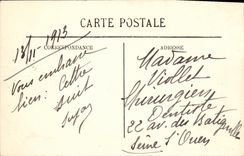 CARTE POSTALE
CORRESPONDANCE
ADRESSE
13/11-1913
Vous embrasse
bien: Lettre
suit
Madame
Viollet
Chirurgien
Dentiste
22 av. des Batignolles
Seine St Ouen